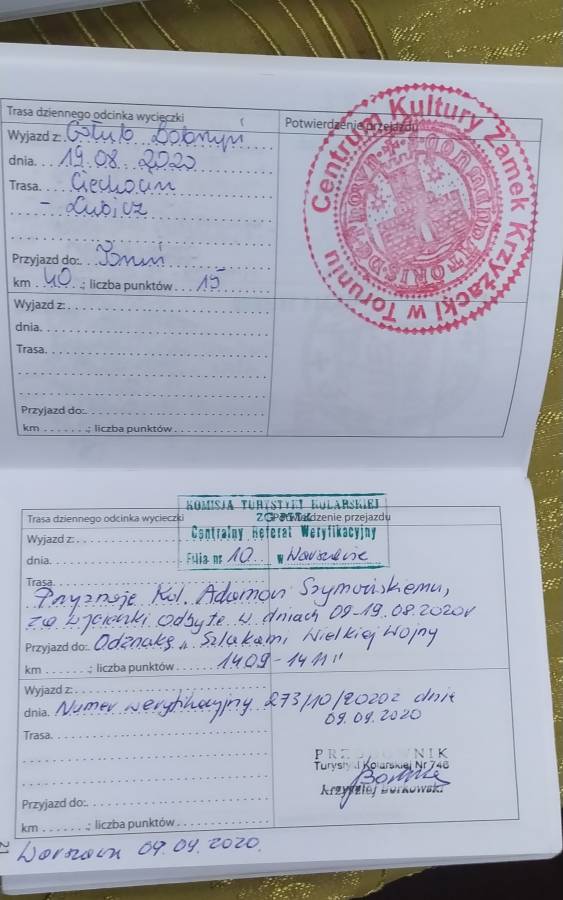 Trasa dziennego odcinka wycieczki
Potwierdzenie przejazdu
Wyjazd z:
dnia. 19.08 2020
Trasa. Ciechocin
- Lubicz
Przyjazd do:.
km 40 .; liczba punktów 15
Centrum Kultury Zamek Krzyżacki w Toruniu
Wyjazd z:
dnia.
Trasa.
Przyjazd do:.
km .; liczba punktów
KOMISJA TURYSTYKI KOLARSKIEJ
ZG PTTK
Trasa dziennego odcinka wycieczki
Potwierdzenie przejazdu
Centralny Referat Weryfikacyjny
Wyjazd z:
Filia nr 10 w Warszawie
dnia.
Trasa.
Przyznaje Kol. Adamowi Szymońskiemu,
za wycieczki odbyte w dniach 09-19.08.2020r
Przyjazd do: Odznakę "Szlakami Wielkiej Wojny
km .; liczba punktów 1409-1411"
Wyjazd z:
dnia. Numer weryfikacyjny 273/10/2020z dnia
09.09.2020
Trasa.
PRZODOWNIK
Turystyki Kolarskiej Nr 746
Krzysztof Borkowski
Przyjazd do:.
km .; liczba punktów
21
Warszawa 09.09.2020.